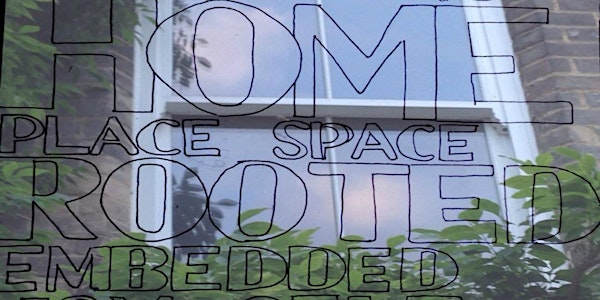 HOME
PLACE SPACE
ROOTED
EMBEDDED